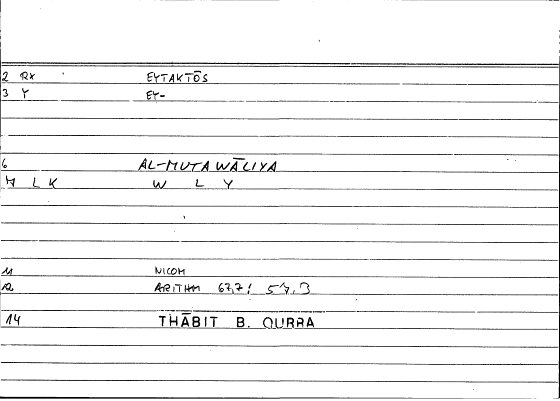 2 RX EYTAKTŌS
3 Y EY-
6 AL-MUTAWĀLIYA
L K W L Y
11 NICOM
12 ARITHM 67,7; 57,3
14 THĀBIT B. QURRA